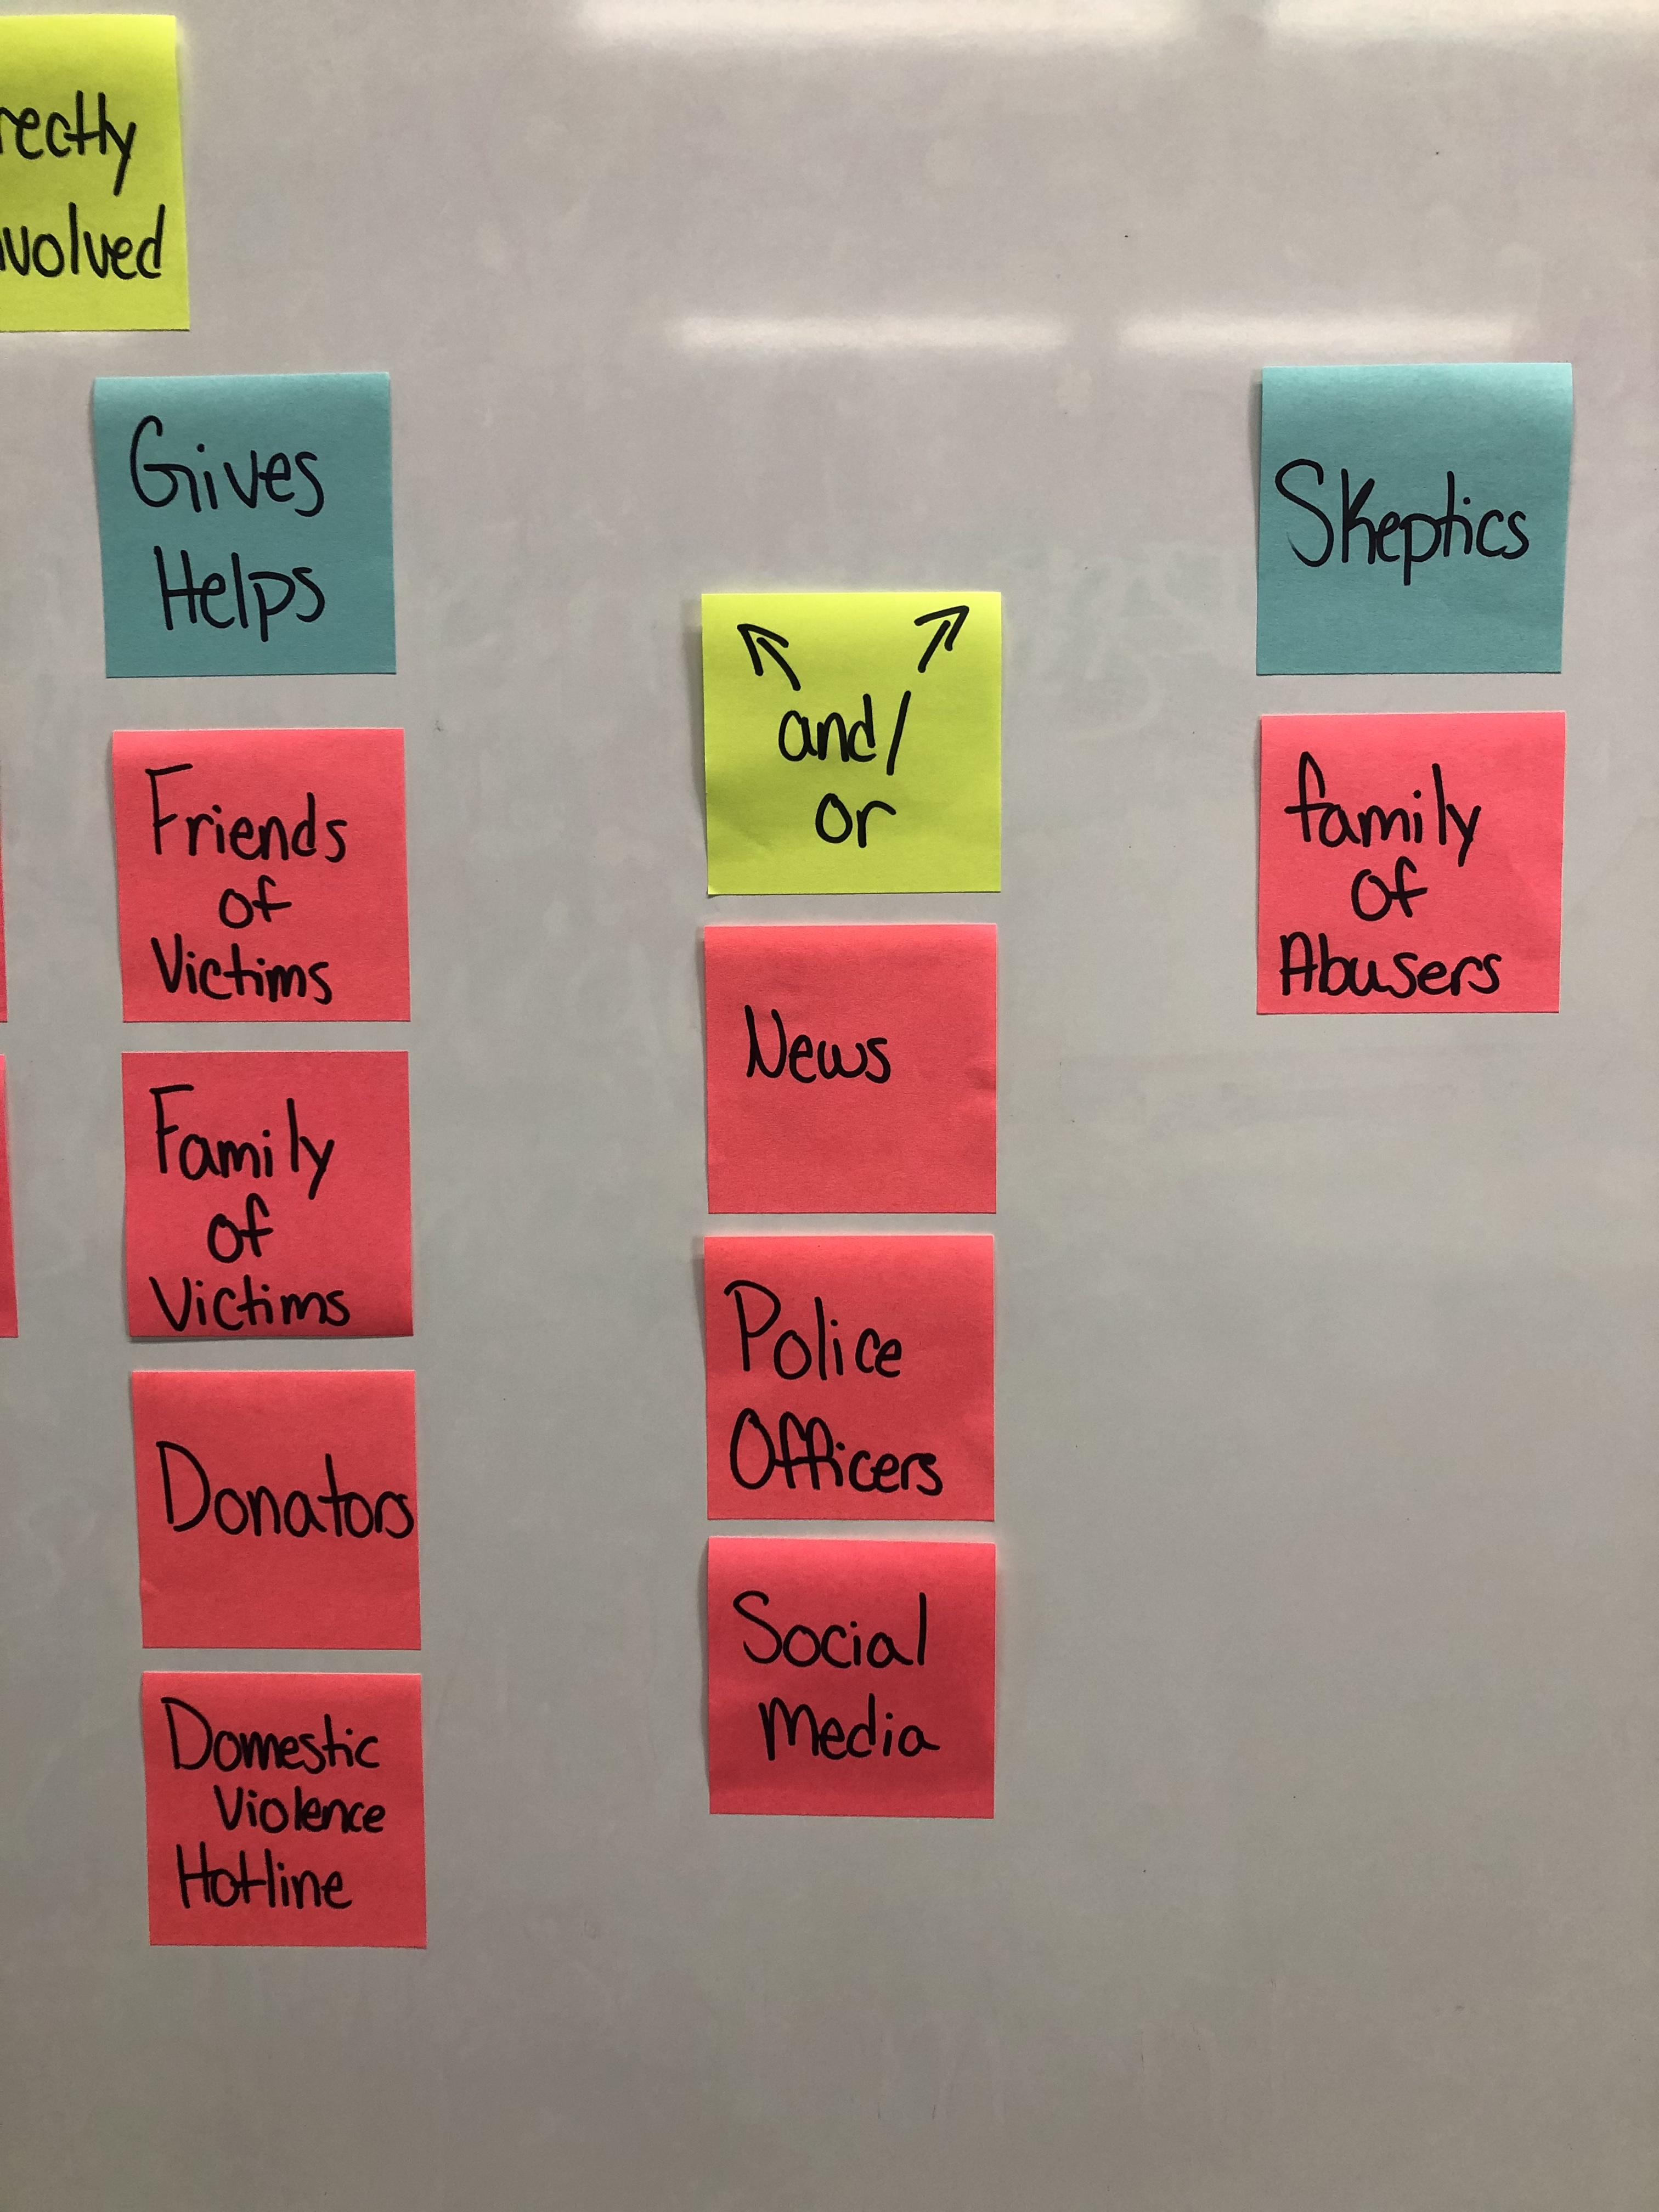 rectly
nvolved
Gives
Helps
Friends
of
Victims
Family
of
Victims
Donators
Domestic
Violence
Hotline
and/
or
News
Police
Officers
Social
Media
Skeptics
family
of
Abusers